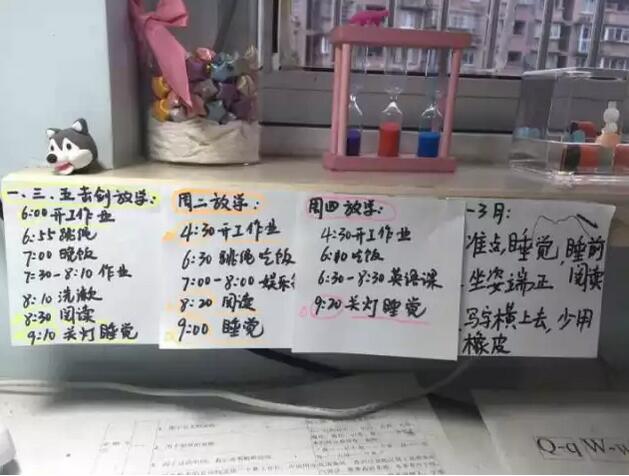 一、三、五击剑放学:
6:00 开工作业
6:55 跳绳
7:00 晚饭
7:30-8:10 作业
8:10 洗漱
8:30 阅读
9:10 关灯睡觉
周二放学:
4:30 开工作业
6:30 跳绳吃饭
7:00-8:00 娱乐
8:20 阅读
9:00 睡觉
周四放学:
4:30 开工作业
6:00 吃饭
6:30-8:30 英语课
9:20 关灯睡觉
-3月:
准点睡觉,睡前
阅读
坐姿端正
写字横上去,少用
橡皮
Q-q W-w